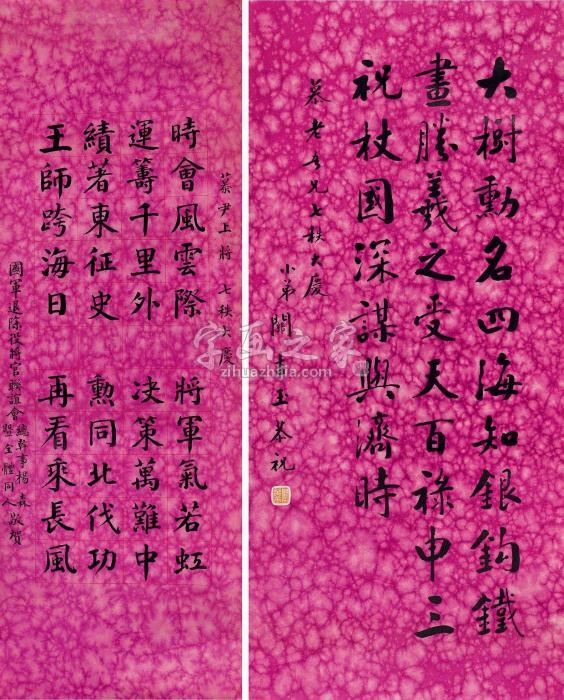 大樹勳名四海知銀鈎鐵
畫勝羲之受天百祿申三
祝杖國深謀與濟時
慕老吾兄七秩大慶
小弟關吉玉恭祝
慕尹上將 七秩大慶
時會風雲際 將軍氣若虹
運籌千里外 决策萬難中
績著東征史 勲同北伐功
王師跨海日 再看乘長風
國軍退除役將官聯誼會 總幹事楊森
暨全體同人 敬賀
字画之家
zihuazhijia.com